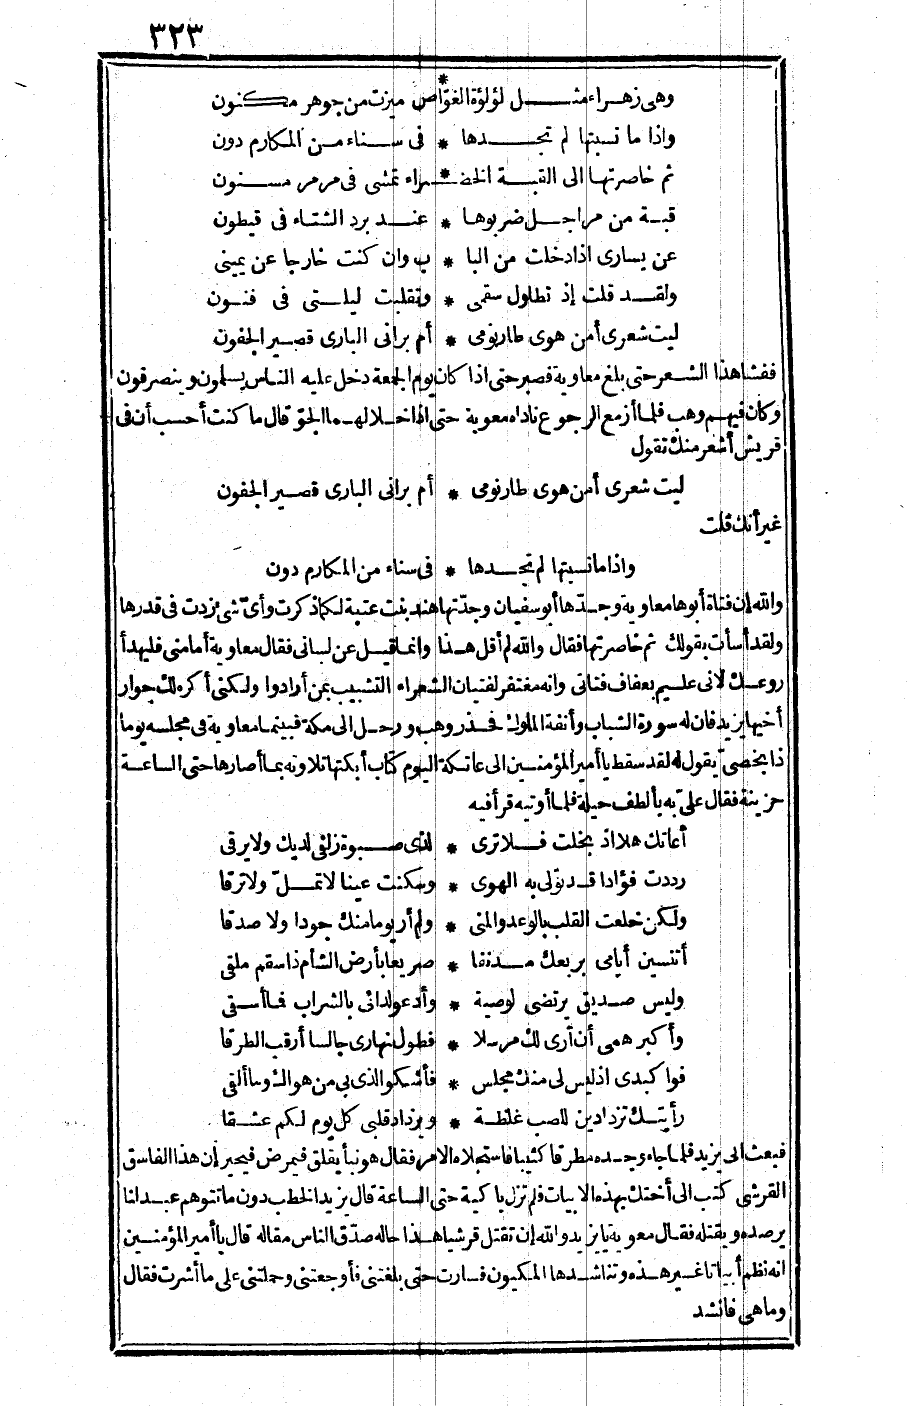 ٣٢٣
وهى زهراء مثل لؤلؤة الغوّاص * ميزت من جوهر مكنون
واذا ما نسبتها لم تجدها * فى سناء من المكارم دون
ثم خاصرتها الى القبة الخضراء * تمشى فى مرمر مسنون
قبة من مراجل ضربوها * عند برد الشتاء فى قيطون
عن يسارى اذا دخلت من البا * ب وان كنت خارجا عن يمينى
ولقد قلت إذ تطاول سقمى * وتقلبت ليلتى فى فنون
ليت شعرى أمن هوى طار نومى * أم برانى البارى قصير الجفون
ففشا هذا الشعر حتى بلغ معاوية فصبر حتى اذا كان يوم الجمعة دخل عليه الناس يسلمون وينصرفون
وكان فيهم وهب فلما أزمع الرجوع ناداه معوية حتى اذا خلا لهما الجوّ قال ما كنت أحسب أن فى
قريش أشعر منك تقول
ليت شعرى أمن هوى طار نومى * أم برانى البارى قصير الجفون
غير أنك قلت
واذا ما نسبتها لم تجدها * فى سناء من المكارم دون
والله إن فتاة أبوها معاوية وجدّها أبو سفيان وجدّتها هند بنت عتبة لكما ذكرت وأىّ شئ زدت فى قدرها
ولقد أسأت بقولك ثم خاصرتها فقال والله لم أقل هذا وانما قيل عن لسانى فقال معاوية أما منى فليهدأ
روعك لانى عليم بعفاف فتاتى وانه مغتفر لفتيان الشعراء التشبيب بمن أرادوا ولكنى أكره لك جوار
أخيها يزيد فان له سورة الشباب وأنفة الملوك فحذر وهب ورحل الى مكة فبينما معاوية فى مجلسه يوما
ذا بخصىّ يقول له لقد سقط يا أمير المؤمنين الى عاتكة اليوم كتاب أبكتها تلاوته بما أصارها حتى الساعة
حزينة فقال علىّ به بألطف حيلة فلما أوتيه قرأ فيه
أعاتك هلا اذ بخلت فلا ترى * لذى صبوة زلفى لديك ولا يرقى
رددت فؤادا قد تولى به الهوى * وسكنت عينا لا تملّ ولا ترقا
ولكن خلعت القلب بالوعد والمنى * ولم أر يوما منك جودا ولا صدقا
أتنسين أيامى بربعك مدنفا * صريعا بأرض الشأم ذا سقم ملقى
وليس صديق يرتضى لوصية * وأدعو لدائى بالشراب فما أسقى
وأكبر همى أن أرى لك مرسلا * فطول نهارى جالسا أرقب الطرقا
فوا كبدى اذ ليس لى منك مجلس * فأشكو الذى بى من هواك وما ألقى
رأيتك تزدادين للصب غلظة * ويزداد قلبى كل يوم لكم عشقا
فبعث الى يزيد فلما جاء وجده مطرقا كئيبا فاستعلاه الامر فقال هو نبأ يقلق فيمرض فيحير إن هذا الفاسق
القرشى كتب الى أختك بهذه الابيات فلم تزل باكية حتى الساعة قال يزيد الخطب دون ما تتوهم عبد لنا
يرصده ويقتله فقال معوية يا يزيد والله إن تقتل قرشيا هذا حاله صدّق الناس مقاله قال يا أمير المؤمنين
انه نظم أبياتا غير هذه وتناشدها المكيون فسارت حتى بلغتنى فأوجعتنى وحملتنى على ما أشرت فقال
وما هى فانشد